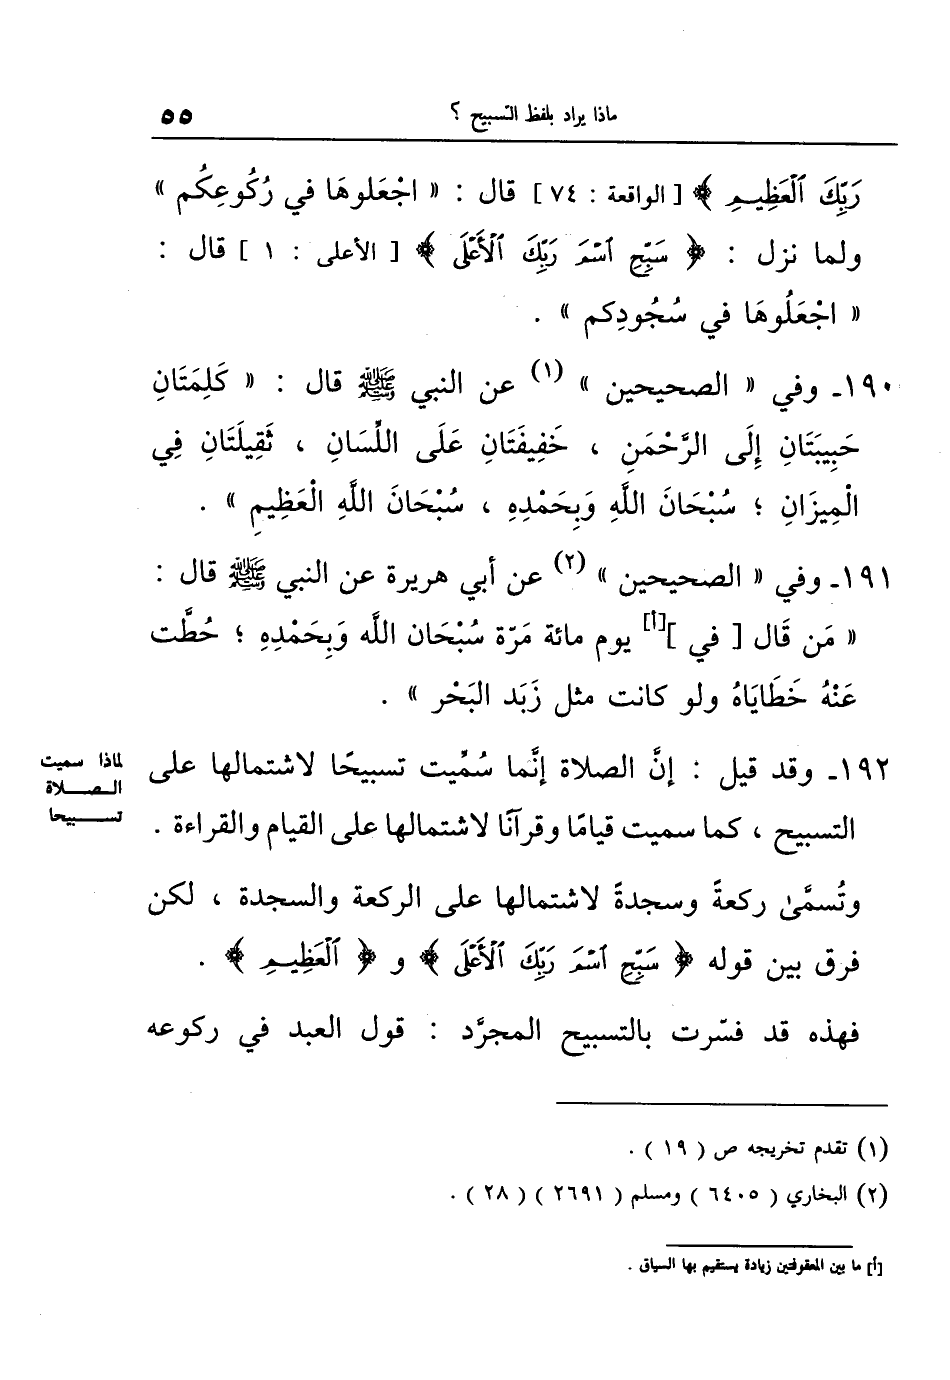 ماذا يراد بلفظ التسبيح ؟ ٥٥
رَبِّكَ ٱلْعَظِيمِ ﴾ [ الواقعة : ٧٤ ] قال : « اجْعَلوهَا في رُكُوعِكُم »
ولما نزل : ﴿ سَبِّحِ ٱسْمَ رَبِّكَ ٱلْأَعْلَى ﴾ [ الأعلى : ١ ] قال :
« اجْعَلُوهَا في سُجُودِكم » .
١٩٠ـ وفي « الصحيحين » (١) عن النبي ﷺ قال : « كَلِمَتَانِ
حَبِيبَتَانِ إِلَى الرَّحْمَنِ ، خَفِيفَتَانِ عَلَى اللِّسَانِ ، ثَقِيلَتَانِ فِي
الْمِيزَانِ ؛ سُبْحَانَ اللَّهِ وَبِحَمْدِهِ ، سُبْحَانَ اللَّهِ الْعَظِيمِ » .
١٩١ـ وفي « الصحيحين » (٢) عن أبي هريرة عن النبي ﷺ قال :
« مَن قَال [ في ][أ] يوم مائة مَرّة سُبْحَان اللَّه وَبِحَمْدِهِ ؛ حُطَّت
عَنْهُ خَطَايَاهُ ولو كانت مثل زَبَد البَحْر » .
١٩٢ـ وقد قيل : إنَّ الصلاة إنَّما سُمِّيت تسبيحًا لاشتمالها على
لماذا سميت
الصـلاة
تسبيحا
التسبيح ، كما سميت قيامًا وقرآنًا لاشتمالها على القيام والقراءة .
وتُسمَّىٰ ركعةً وسجدةً لاشتمالها على الركعة والسجدة ، لكن
فرق بين قوله ﴿ سَبِّحِ ٱسْمَ رَبِّكَ ٱلْأَعْلَى ﴾ و ﴿ ٱلْعَظِيمِ ﴾ .
فهذه قد فسّرت بالتسبيح المجرَّد : قول العبد في ركوعه
(١) تقدم تخريجه ص ( ١٩ ) .
(٢) البخاري ( ٦٤٠٥ ) ومسلم ( ٢٦٩١ ) ( ٢٨ ) .
[أ] ما بين المعقوفتين زيادة يستقيم بها السياق .